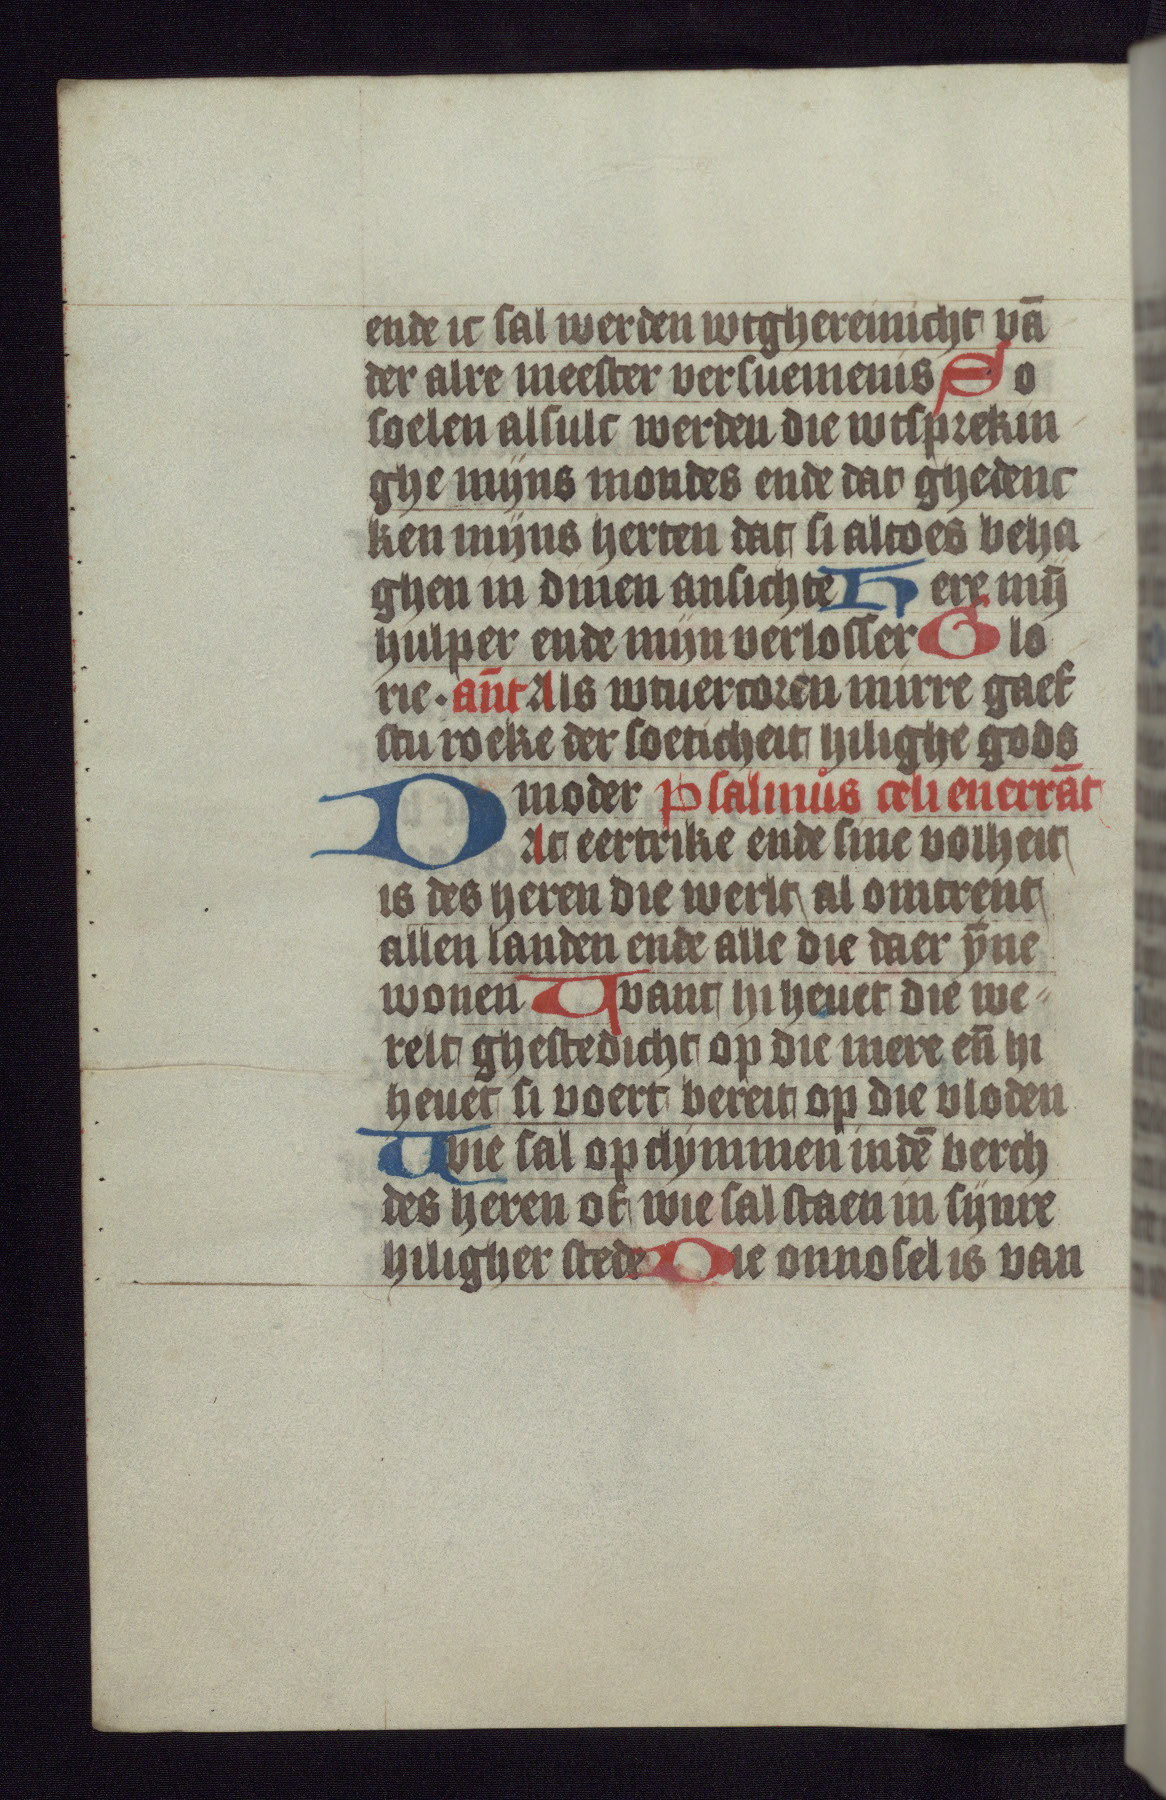 ende ic sal werden wtghereinicht vā
der alre meester versuemenis So
soelen alsulc werden die wtsprekin
ghe mijns mondes ende dat ghedenc
ken mijns herten dat si altoes beha
ghen in dinen ansichte Here mij̄
hulper ende mijn verlosser Glo
rie · an̄t Als wtuercoren mirre gaef
stu roeke der soeticheit hilighe gods
moder Psalmus celi enerrāt
Dat eertrike ende sine volheit
is des heren die werlt al omtrent
allen landen ende alle die daer ȳne
wonen Want hi heuet die we-
relt ghestedicht op die mere en̄ hi
heuet si voert bereit op die vloden
Wie sal op clymmen indē berch
des heren of wie sal staen in sijnre
hiligher stede Die onnosel is van